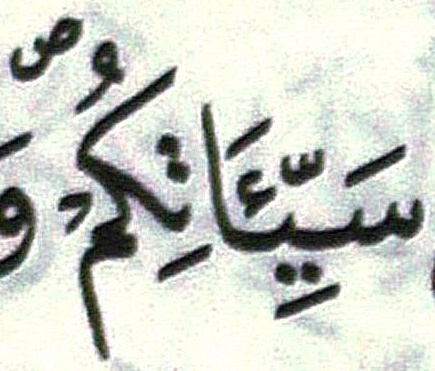 سَيِّئَاتِكُمْ ص وَ